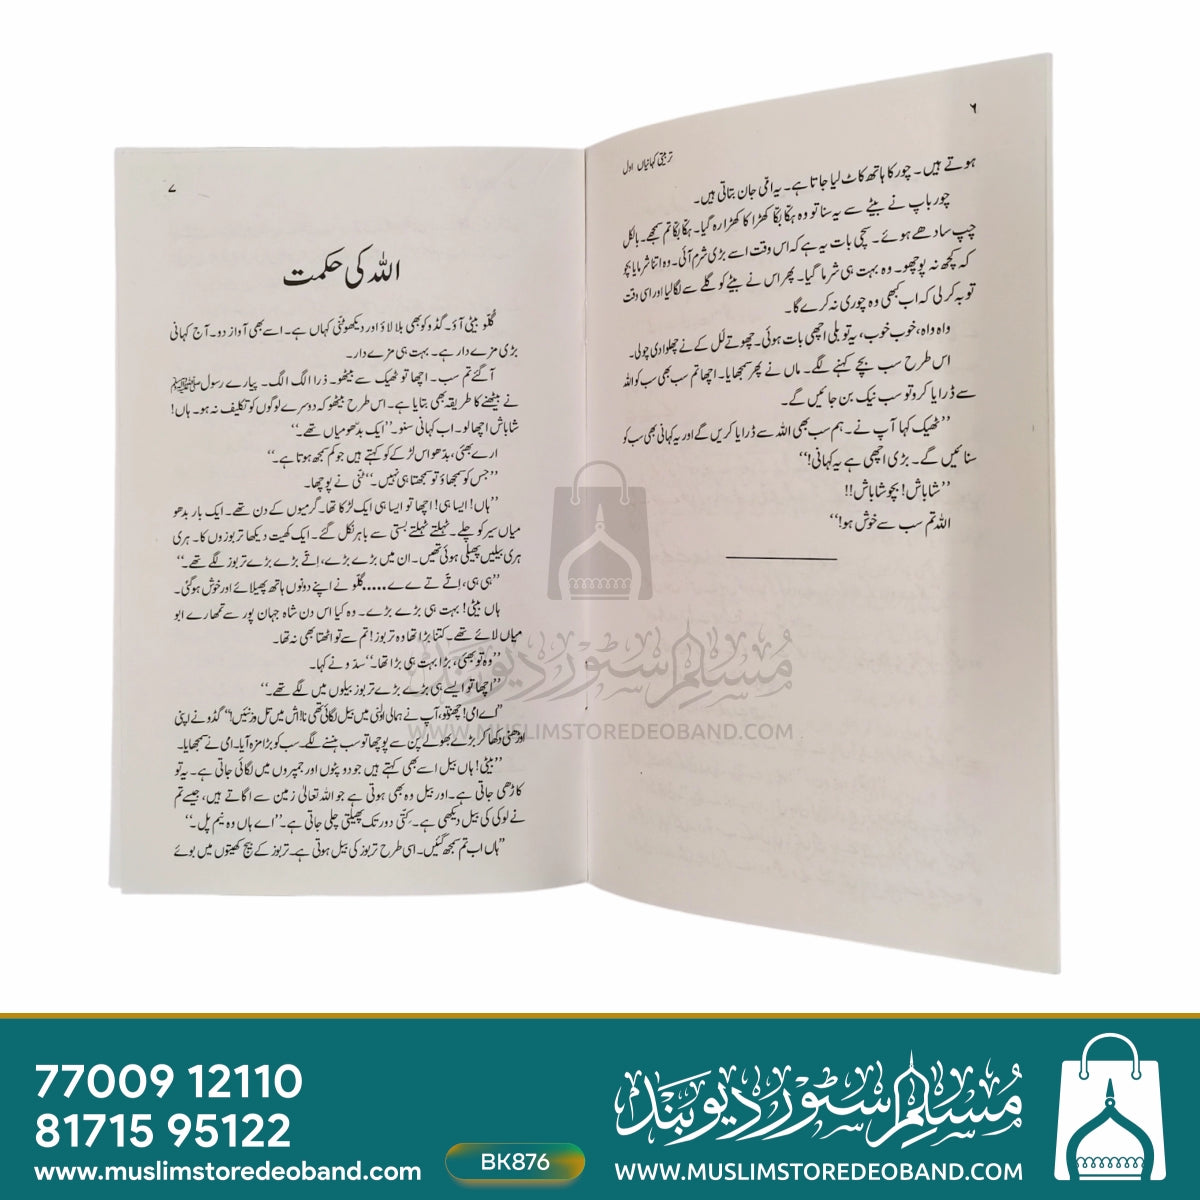 ۶
تربیتی کہانیاں اول
ہوتے ہیں۔ چور کا ہاتھ کاٹ لیا جاتا ہے۔ یہ امّی جان بتاتی ہیں۔
چور باپ نے بیٹے سے یہ سنا تو وہ ہکّا بکّا کھڑا کا کھڑا رہ گیا۔ ہکّا بکّا تم سمجھے۔ بالکل
چپ سادھے ہوئے۔ سچی بات یہ ہے کہ اس وقت اسے بڑی شرم آئی۔ وہ اتنا شرمایا بچو
کہ کچھ نہ پوچھو۔ وہ بہت ہی شرما گیا۔ پھر اس نے بیٹے کو گلے سے لگالیا اور اسی وقت
توبہ کرلی کہ اب کبھی وہ چوری نہ کرے گا۔
واہ واہ، خوب خوب، یہ تو بلی اچھی بات ہوئی۔ چھوتے لل کے نے چھلوادی چولی۔
اس طرح سب بچے کہنے لگے۔ ماں نے پھر سمجھایا۔ اچھا تم سب بھی سب کو اللہ
سے ڈرایا کرو تو سب نیک بن جائیں گے۔
’’ٹھیک کہا آپ نے۔ ہم سب بھی اللہ سے ڈرایا کریں گے اور یہ کہانی بھی سب کو
سنائیں گے۔ بڑی اچھی ہے یہ کہانی!‘‘
’’شاباش! بچو شاباش!!
اللہ تم سب سے خوش ہو!‘‘
۷
اللہ کی حکمت
گلّو بیٹی آؤ۔ گڈو کو بھی بلا لاؤ اور دیکھو نّنی کہاں ہے۔ اسے بھی آواز دو۔ آج کہانی
بڑی مزے دار ہے۔ بہت ہی مزے دار۔
آگئے تم سب۔ اچھا تو ٹھیک سے بیٹھو۔ ذرا الگ الگ۔ پیارے رسول ﷺ
نے بیٹھنے کا طریقہ بھی بتایا ہے۔ اس طرح بیٹھو کہ دوسرے لوگوں کو تکلیف نہ ہو۔ ہاں!
شاباش اچھا لو۔ اب کہانی سنو۔ ’’ایک بدّھو میاں تھے۔‘‘
ارے بھئی، بدھو اس لڑکے کو کہتے ہیں جو کم سمجھ ہوتا ہے۔
’’جس کو سمجھاؤ تو سمجھتا ہی نہیں۔‘‘ نّنی نے پوچھا۔
’’ہاں! ایسا ہی! اچھا تو ایسا ہی ایک لڑکا تھا۔ گرمیوں کے دن تھے۔ ایک بار بدھو
میاں سیر کو چلے۔ ٹہلتے ٹہلتے بستی سے باہر نکل گئے۔ ایک کھیت دیکھا تربوزوں کا۔ ہری
ہری بیلیں پھیلی ہوئی تھیں۔ ان میں بڑے بڑے، اِتّے بڑے بڑے تربوز لگے تھے۔‘‘
’’ہی ہی، اِتّے تے ے ے..... گلّو نے اپنے دونوں ہاتھ پھیلائے اور خوش ہوگئی۔
ہاں بیٹی! بہت ہی بڑے بڑے۔ وہ کیا اس دن شاہ جہان پور سے تمھارے ابو
میاں لائے تھے۔ کتنا بڑا تھا وہ تربوز! تم سے تو اٹھتا بھی نہ تھا۔
’’وہ تو بھئی، بڑا بہت ہی بڑا تھا۔‘‘ سدّو نے کہا۔
’’اچھا تو ایسے ہی بڑے بڑے تربوز بیلوں میں لگے تھے۔‘‘
اوڑھنی دکھا کر بڑے بھولے پن سے پوچھا تو سب ہنسنے لگے۔ سب کو بڑا مزہ آیا۔ امی نے سمجھایا۔
’’بیٹی! ہاں بیل اسے بھی کہتے ہیں جو دوپٹوں اور جمپروں میں لگائی جاتی ہے۔ یہ تو
کاڑھی جاتی ہے۔ اور بیل وہ بھی ہوتی ہے جو اللہ تعالیٰ زمین سے اگاتے ہیں، جیسے تم
نے لوکی کی بیل دیکھی ہے۔ کِتّی دور تک پھیلتی چلی جاتی ہے۔‘‘ ’’اے ہاں وہ نیم پل۔‘‘
’’ہاں اب تم سمجھ گئیں۔ اسی طرح تربوز کی بیل ہوتی ہے۔ تربوز کے بیج کھیتوں میں بوئے
مسلم سٹور دیوبند
WWW.MUSLIMSTOREDEOBAND.COM
77009 12110
81715 95122
www.muslimstoredeoband.com
BK876
مسلم سٹور دیوبند
WWW.MUSLIMSTOREDEOBAND.COM